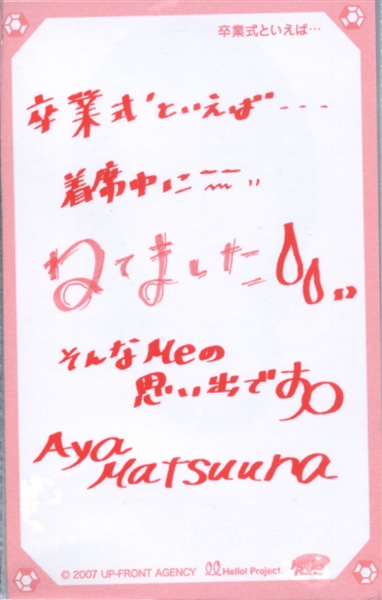 卒業式といえば…
卒業式といえば…
着席中に…
ねてました
そんなMeの
思い出です。
Aya
Matsuura
© 2007 UP-FRONT AGENCY Hello! Project.